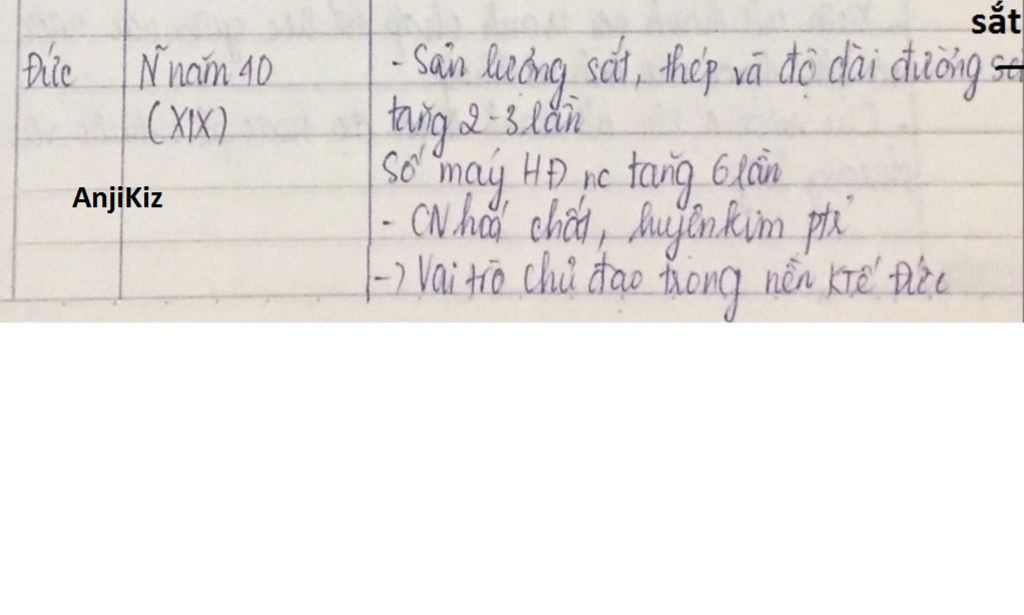 sắt
Đức Ñ năm 40 - Sản lượng sắt, thép và độ dài đường
(XIX) tăng 2-3 lần
Số máy HĐ nc tăng 6 lần
AnjiKiz
- CN hoá chất, luyện kim ptr
-> Vai trò chủ đạo trong nền KTế Đức